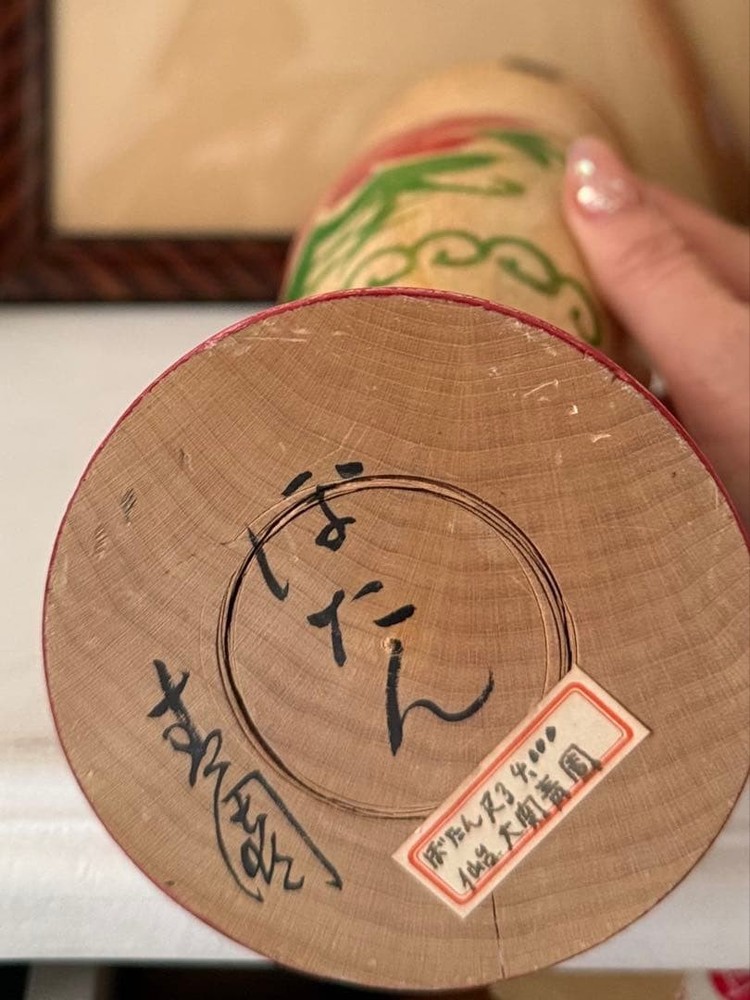 ぼたん
青園
ぼたん 尺3 4.000
仙台 大関青園